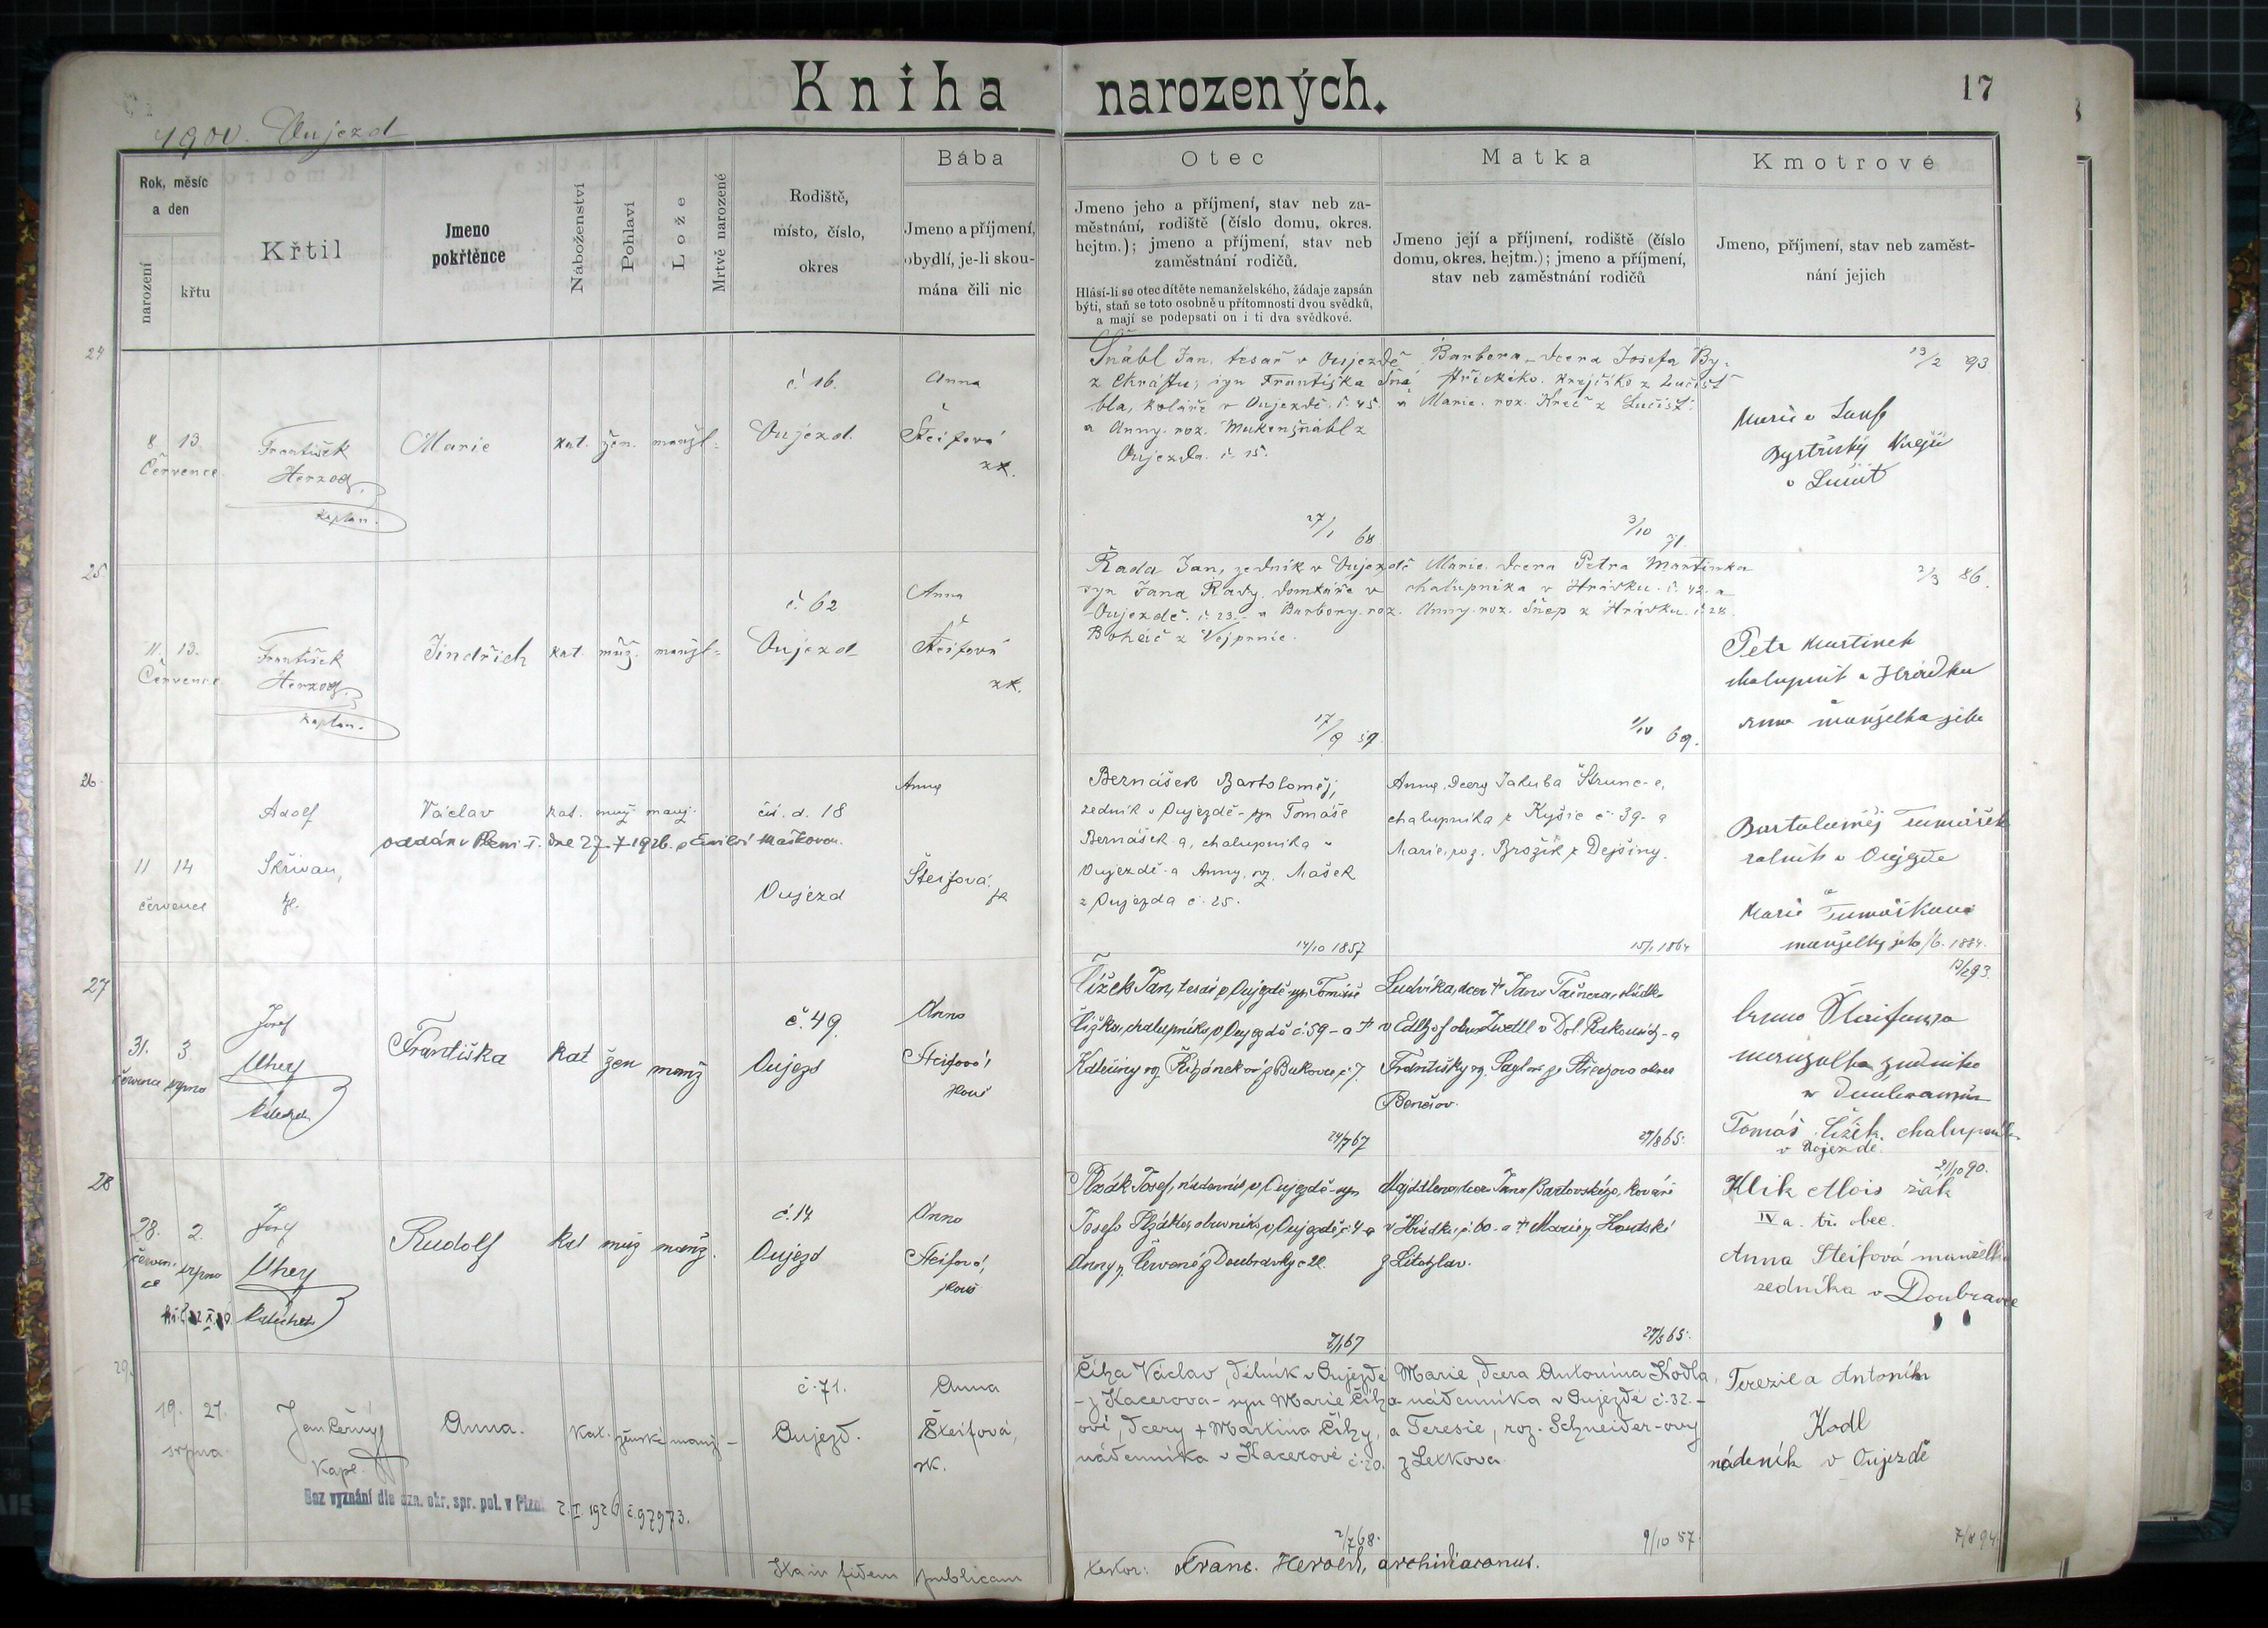 Kniha narozených.
17
1900. Oujezd
Rok, měsíc
a den
narození
křtu
Křtil
Jmeno
pokřtěnce
Náboženství
Pohlaví
Lože
Mrtvě narozené
Rodiště,
místo, číslo,
okres
Bába
Jmeno a příjmení,
obydlí, je-li skou-
mána čili nic
Otec
Jmeno jeho a příjmení, stav neb za-
městnání, rodiště (číslo domu, okres.
hejtm.); jmeno a příjmení, stav neb
zaměstnání rodičů.
Hlásí-li se otec dítěte nemanželského, žádaje zapsán
býti, staň se toto osobně u přítomnosti dvou svědků,
a mají se podepsati on i ti dva svědkové.
Matka
Jmeno její a příjmení, rodiště (číslo
domu, okres. hejtm.); jmeno a příjmení,
stav neb zaměstnání rodičů
Kmotrové
Jmeno, příjmení, stav neb zaměst-
nání jejich
24
8. 13.
Července
František
Herzog,
kaplan.
Marie
kat. žen. manžl.
č. 16.
Oujezd.
Anna
Šteifová
zk.
Šnábl Jan, tesař v Oujezdě
z Chrástu; syn Františka Šná
bla, koláře v Oujezdě. č. 45.
a Anny. roz. Mukenšnábl z
Oujezda. č. 15.
27/1 68
Barbora, dcera Josefa By-
střického. krejčího z
a Marie. roz.
3/10 71.
13/2 93
Marie a
Bystřický
25.
11. 13.
Července
František
Herzog
kaplan.
Jindřich
kat. muž. manžl.
č. 62
Oujezd
Anna
Šteifová
zk.
Řada Jan, zedník v Oujezdě
syn Jana Řady, domkáře v
Oujezdě. č. 23. a Barbory. roz.
Boháč z Vejprnic.
17/9 59.
Marie. dcera Petra Martínka
chalupníka v Hrádku. č. 42. a
Anny. roz. Šnep z Hrádku. č. 28.
1/10 69.
2/3 86.
Petr Martínek
chalupník z Hrádku
Anna manželka jeho
26.
11 14
července
Adolf
Skřivan,
Václav
kat. muž manž.
oddán v Plzni I. dne 27.7.1926. s Emilií Maškovou.
čís. d. 18
Oujezd
Anna
Šteifová,
zk
Bernášek Bartoloměj,
zedník v Oujezdě - syn Tomáše
Bernášek-a, chalupníka v
Oujezdě - a Anny, roz. Mašek
z Oujezda č. 25.
14/10 1857
Anna, dcera Jakuba Štrunc-e,
chalupníka z Kyšic č. 39 - a
Marie, roz. Brožík z Dejšiny.
15/1 1864
Bartoloměj Tumášek
rolník v Oujezdě
Marie Tumáškova
manželky jeho /6. 1884.
27
31. 3.
července srpna
Josef
Uhey
katecheta
Františka
kat žen manž
č. 49.
Oujezd
Anna
Šteifová,
zkouš
Čížek Jan, tesař v Oujezdě - syn Tomáše
Čížka, chalupníka v Oujezdě č. 59 - a †
Kateřiny roz. z Bukovce č. 7.
24/7 67
Ludvika, dcera † Jana
v
Františky roz. okres
Benešov.
29/8 65.
13/2 93.
Anna
manželka zedníka
v
Tomáš Čížek. chalupník
v Oujezdě.
28
28. 2.
července srpna
Josef
Uhey
katecheta
Rudolf
kat muž manž.
č. 14
Oujezd
Anna
Šteifová,
zkouš
Plzák Josef, nádenník v Oujezdě - syn
Josefa Plzáka, obuvníka v Oujezdě č. 4 a
Anny r. Červené z Doubravky č. 22.
2/1 67
Majdalena, dcera Jana Bartovského, kováře
v Hrádku č. 60. a † Marie r. Houtské
z Litohlav.
27/5 65.
21/10 90.
Klik Alois žák
IV a. tř. obec.
Anna Steifová manželka
zedníka v Doubravce
29.
19. 21.
srpna
Jan Černý
kapl.
Anna.
kat. ženské manž -
Bez vyznání dle ozn. okr. spr. pol. v Plzni 2. I. 1926 č. 97973.
č. 71.
Oujezd.
Anna
Šteifová,
zk.
Číha Václav, dělník v Oujezdě
- z Kacerova - syn Marie Číh-
ové, dcery † Martina Číhy,
nádenníka v Kacerově č. 20.
2/7 68.
Marie, dcera Antonína Kodla,
nádenníka v Oujezdě č. 32. -
a Teresie, roz. Schneider-ovy
z Letkova.
9/10 57
Terezie a Antonín
Kodl
nádeník v Oujezdě
7/8 94.
Ita in fidem publicam
testor: Franc. Herold, archidiaconus.